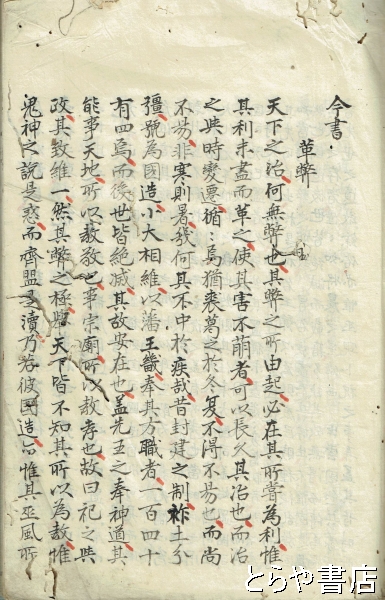 今書
革弊
天下之治何無弊也其弊之所由起必在其所嘗為利惟
其利未盡而革之使其害不萠者可以長久其治也而治
之與時變遷循〻焉猶裘葛之於冬夏不得不昜也而尚
不昜非寒則暑幾何其不中於疾哉昔封建之制祚土分
疆號為國造小大相維以藩王畿奉其方職者一百四十
有四焉而後世皆絶滅其故安在也盖先王之奉神道其
能事天地所以教敬也事宗廟所以教孝也故曰祀之與
政其致維一然其弊之極與天下皆不知其所以為教惟
鬼神之説是惑而齊盟瀆乃若彼國造亦惟其巫風所
とらや書店